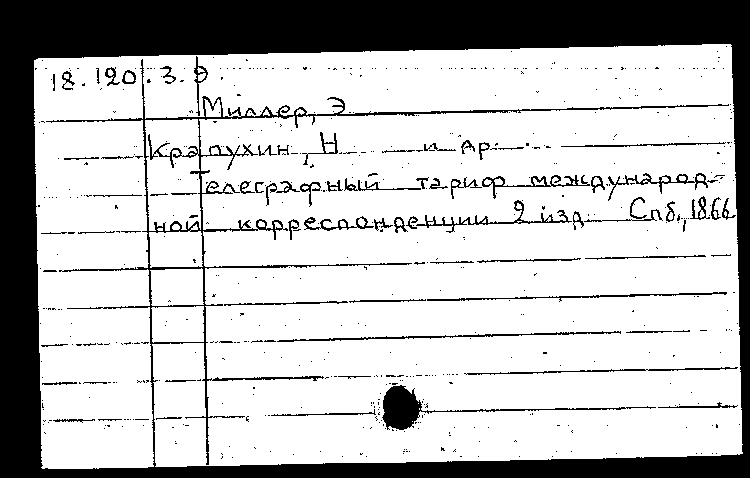 18.120.3.9.
Миллер, Э
Крапухин, Н и др.
Телеграфный тариф международ-
ной корреспонденции 2 изд. Спб., 1866